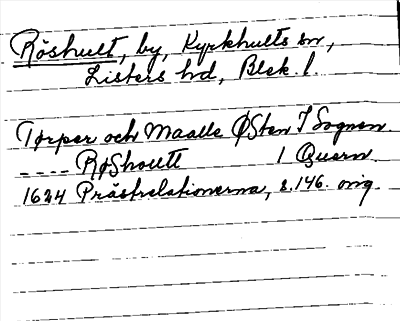 Röshult, by, Kyrkhults sn,
Listers hd, Blek. l.
Tørper och Maalle ØSten I Sognen.
---- RøShoutt 1 Quern.
1624 Prästrelationerna, s. 146. orig.